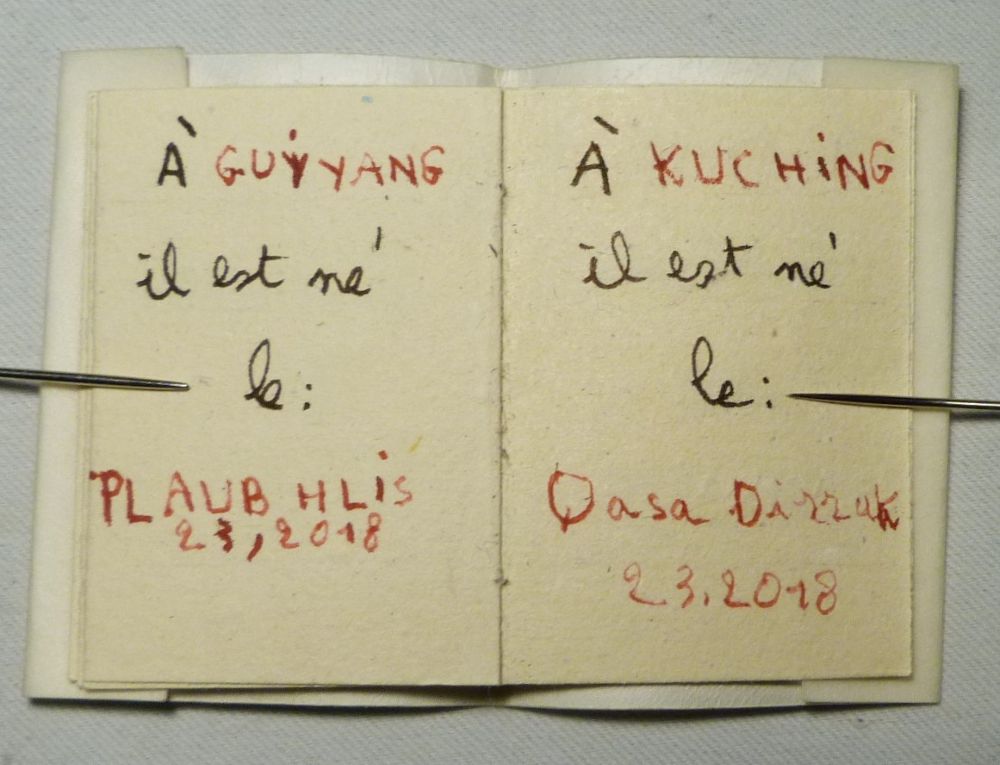 À GUIYYANG
il est né
le :
PLAUB HLIS
23, 2018
À KUCHING
il est né
le :
Dasa Dirrak
23.2018